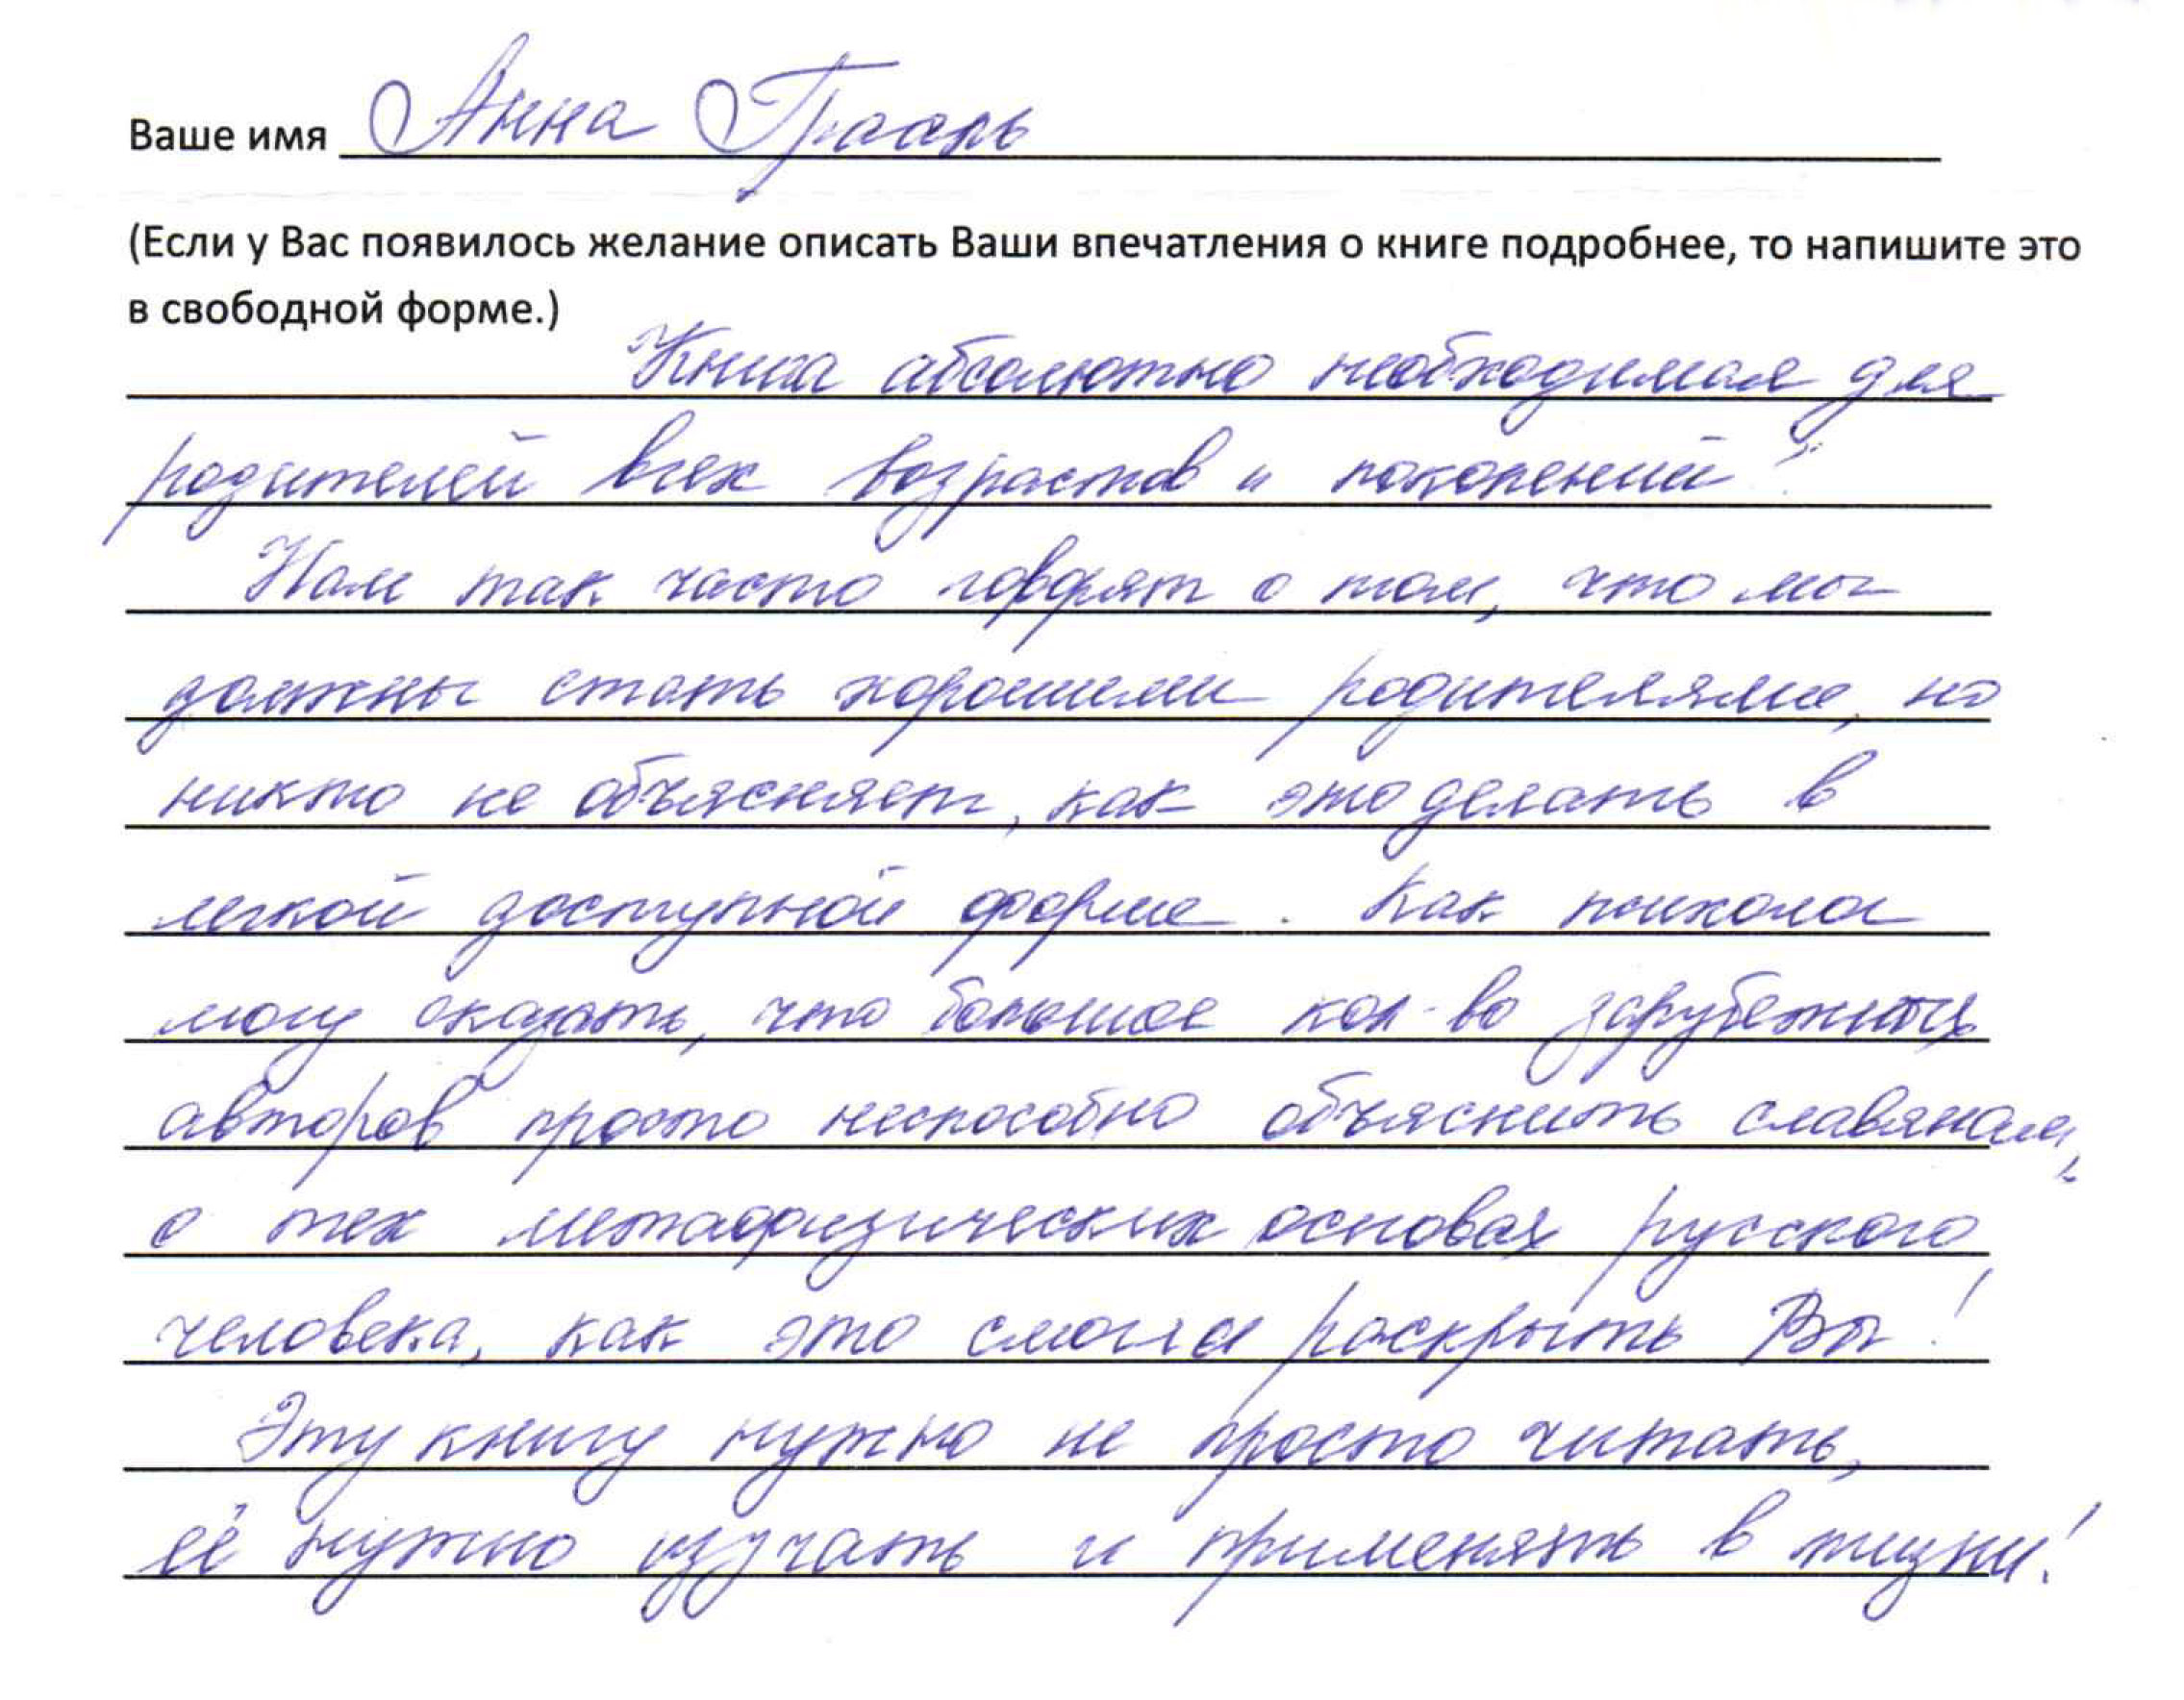 Ваше имя Анна Грааль
(Если у Вас появилось желание описать Ваши впечатления о книге подробнее, то напишите это
в свободной форме.)
Книга абсолютно необходимая для
родителей всех возрастов и поколений!
Нам так часто говорят о том, что мы
должны стать хорошими родителями, но
никто не объясняет, как это делать в
легкой доступной форме. Как психолог
могу сказать, что большое кол-во зарубежных
авторов просто неспособно объяснить славянам,
о тех метафизических основах русского
человека, как это смогли раскрыть Вы!
Эту книгу нужно не просто читать,
её нужно изучать и применять в жизни!